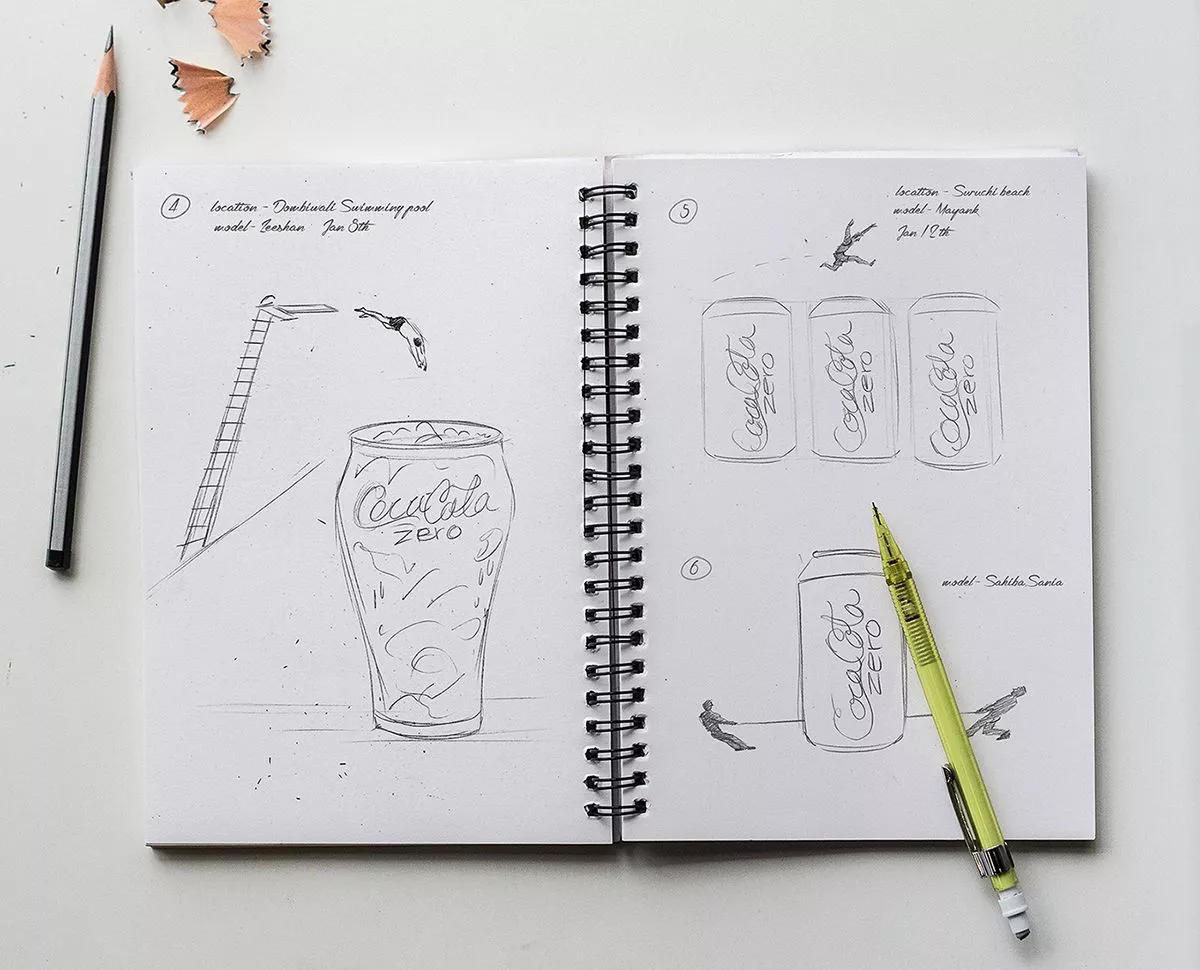 4
location - Dombiwali Swimming pool
model - Zeeshan Jan 8th
CocaCola
zero
5
location - Suruchi beach
model - Mayank
Jan 12th
CocaCola
zero
CocaCola
zero
CocaCola
zero
6
model - Sakiba, Sania
CocaCola
zero